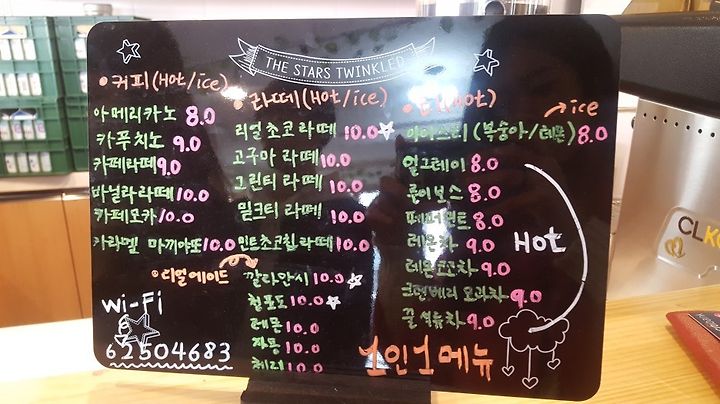 THE STARS TWINKLED
커피(Hot/ice)
아메리카노 8.0
카푸치노 9.0
카페라떼 9.0
바닐라라떼 10.0
카페모카 10.0
카라멜 마끼아또 10.0
라떼(Hot/ice)
리얼초코라떼 10.0
고구마 라떼 10.0
그린티 라떼 10.0
밀크티 라떼 10.0
민트초코칩라떼 10.0
리얼에이드
깔라만시 10.0
청포도 10.0
레몬 10.0
자몽 10.0
체리 10.0
(Hot)
ice
아이스티 (복숭아/레몬) 8.0
얼그레이 8.0
루이보스 8.0
페퍼민트 8.0
레몬차 9.0
9.0
크랜베리 모과차 9.0
꿀 석류차 9.0
Hot
Wi-Fi
62504683
1인1메뉴
CLK